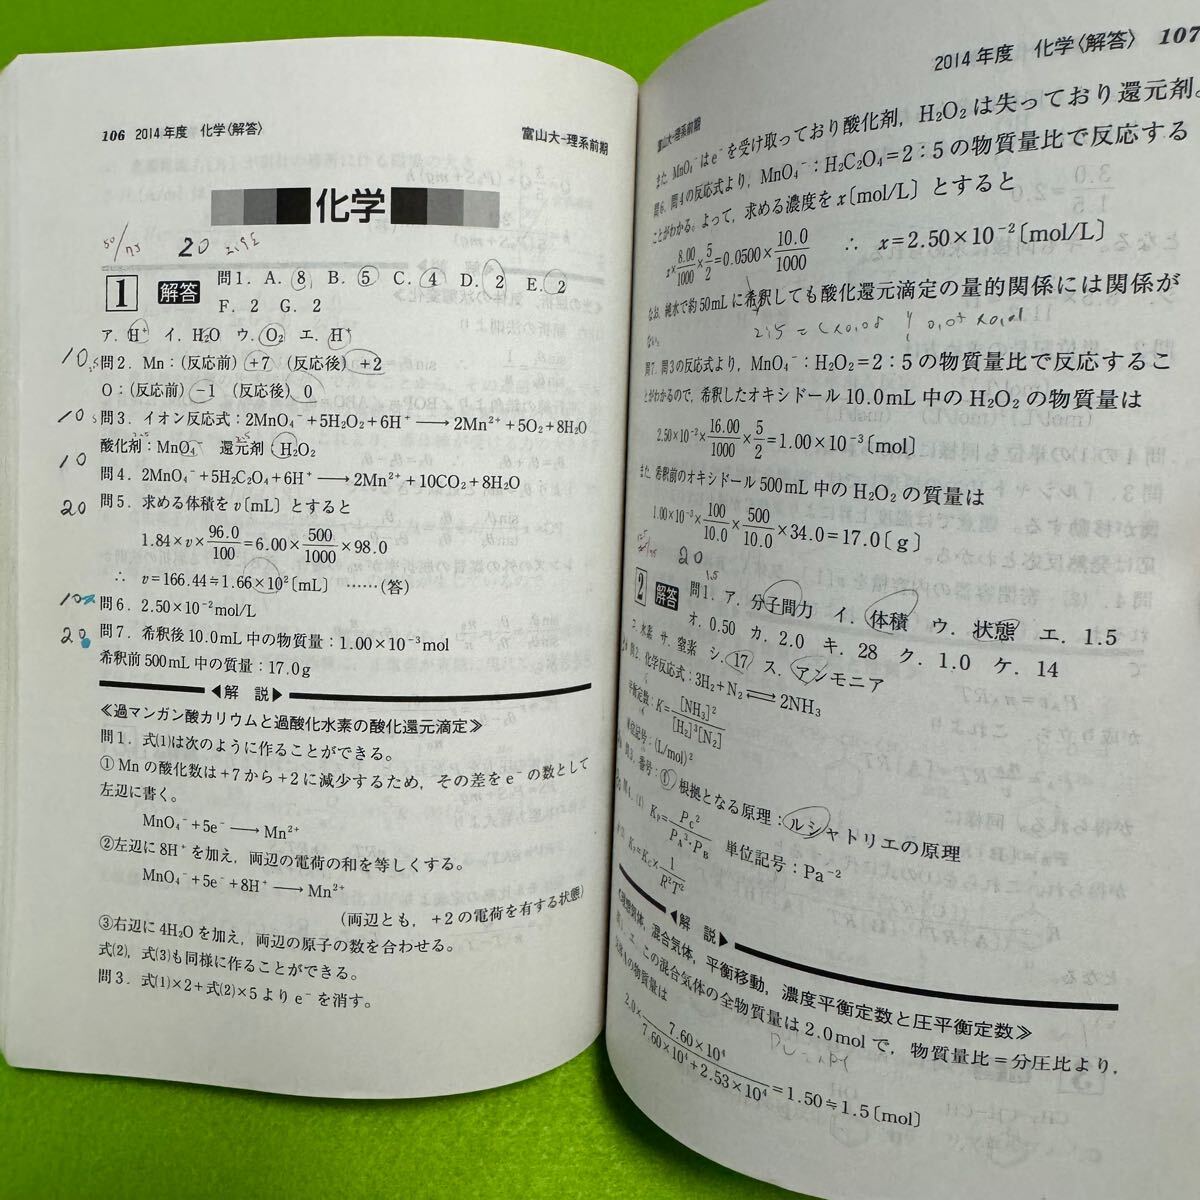 106 2014年度 化学〈解答〉 富山大-理系前期
化学
20
1 解答 問1．A.8 B.5 C.4 D.2 E.2
F.2 G.2
ア．H⁺ イ．H₂O ウ．O₂ エ．H⁺
問2．Mn：(反応前) +7 (反応後) +2
O：(反応前) −1 (反応後) 0
10
問3．イオン反応式：2MnO₄⁻+5H₂O₂+6H⁺ ⟶ 2Mn²⁺+5O₂+8H₂O
酸化剤：MnO₄⁻ 還元剤：H₂O₂
10
問4．2MnO₄⁻+5H₂C₂O₄+6H⁺ ⟶ 2Mn²⁺+10CO₂+8H₂O
20
問5．求める体積を v〔mL〕とすると
1.84×v×96.0/100=6.00×500/1000×98.0
∴ v=166.44≒1.66×10²〔mL〕 ……(答)
10
問6．2.50×10⁻²mol/L
20
問7．希釈後10.0mL中の物質量：1.00×10⁻³mol
希釈前500mL中の質量：17.0g
◀解 説▶
≪過マンガン酸カリウムと過酸化水素の酸化還元滴定≫
問1．式(1)は次のように作ることができる。
①Mnの酸化数は+7から+2に減少するため，その差をe⁻の数として
左辺に書く。
MnO₄⁻+5e⁻ ⟶ Mn²⁺
②左辺に8H⁺を加え，両辺の電荷の和を等しくする。
MnO₄⁻+5e⁻+8H⁺ ⟶ Mn²⁺
(両辺とも，+2の電荷を有する状態)
③右辺に4H₂Oを加え，両辺の原子の数を合わせる。
式(2)，式(3)も同様に作ることができる。
問3．式(1)×2+式(2)×5よりe⁻を消す。
富山大-理系前期 2014年度 化学〈解答〉 107
また，MnO₄⁻はe⁻を受け取っており酸化剤，H₂O₂は失っており還元剤。
問6．問4の反応式より，MnO₄⁻：H₂C₂O₄=2：5の物質量比で反応する
ことがわかる。よって，求める濃度をx〔mol/L〕とすると
x×8.00/1000×5/2=0.0500×10.0/1000 ∴ x=2.50×10⁻²〔mol/L〕
なお，純水で約50mLに希釈しても酸化還元滴定の量的関係には関係が
ない。
問7．問3の反応式より，MnO₄⁻：H₂O₂=2：5の物質量比で反応するこ
とがわかるので，希釈したオキシドール10.0mL中のH₂O₂の物質量は
2.50×10⁻²×16.00/1000×5/2=1.00×10⁻³〔mol〕
また，希釈前のオキシドール500mL中のH₂O₂の質量は
1.00×10⁻³×100/10.0×500/10.0×34.0=17.0〔g〕
20
2 解答 問1．ア．分子間力 イ．体積 ウ．状態 エ．1.5
オ．0.50 カ．2.0 キ．28 ク．1.0 ケ．14
コ．水素 サ．窒素 シ．17 ス．アンモニア
問2．化学反応式：3H₂+N₂ ⇄ 2NH₃
平衡定数：K=[NH₃]²/[H₂]³[N₂]
単位記号：(L/mol)²
問3．番号：① 根拠となる原理：ルシャトリエの原理
問4．(1) Kp=Pc²/PA³･PB 単位記号：Pa⁻²
Kp=Kc×1/R²T²
◀解 説▶
≪理想気体，混合気体，平衡移動，濃度平衡定数と圧平衡定数≫
問1．エ．この混合気体の全物質量は2.0molで，物質量比=分圧比より，
気体Aの物質量は
2.0×7.60×10⁴/7.60×10⁴+2.53×10⁴=1.50≒1.5〔mol〕